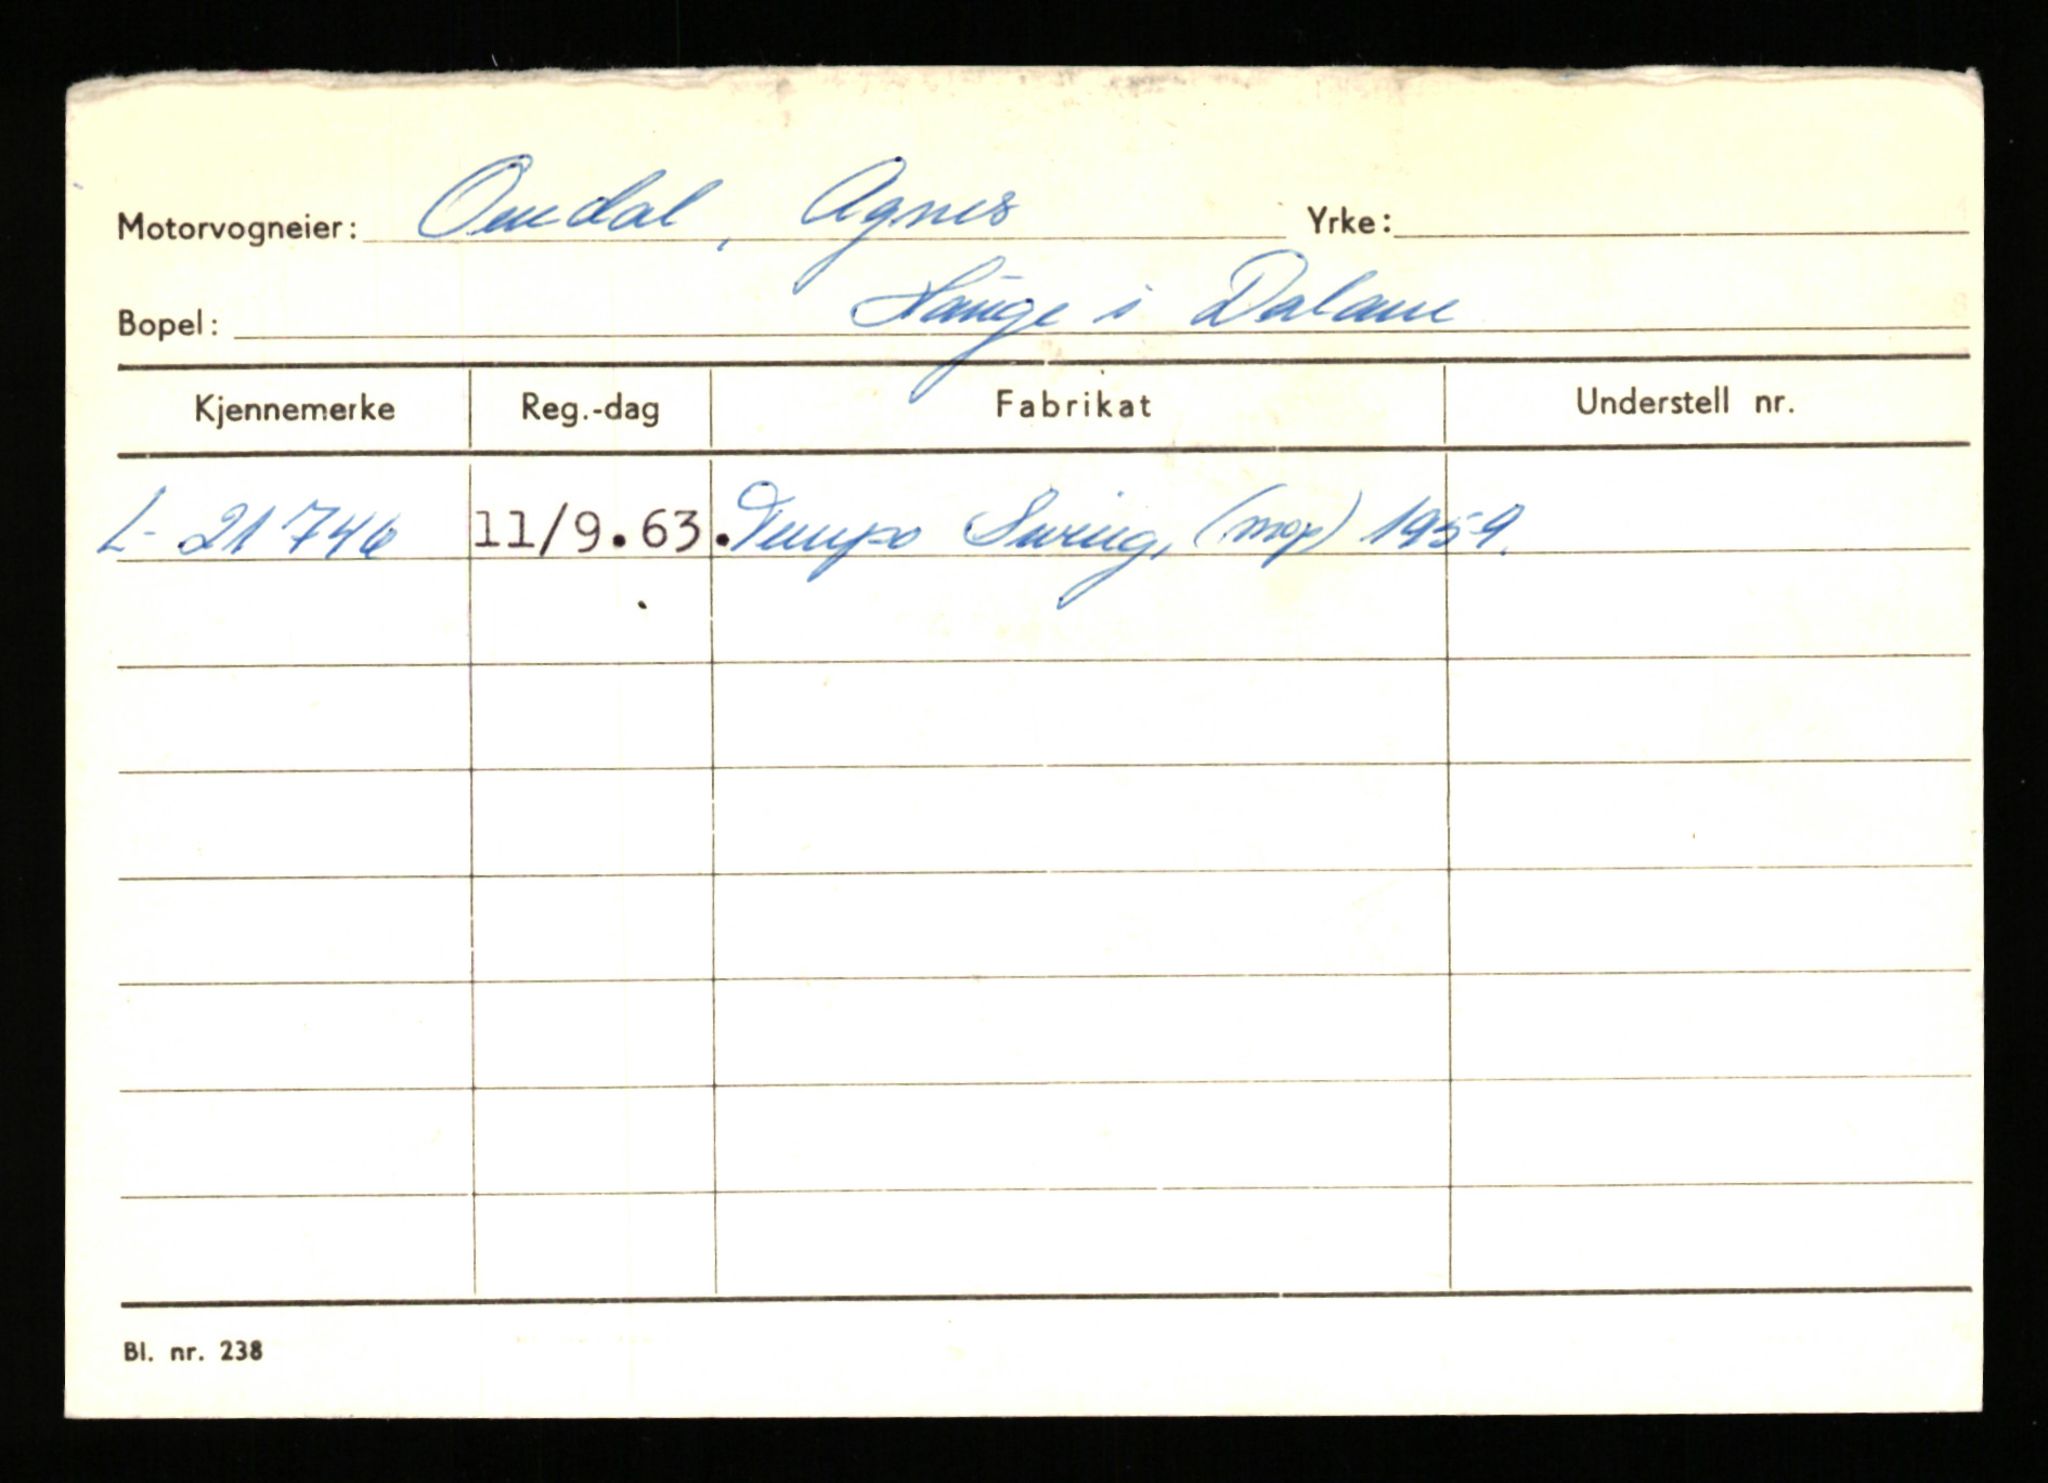 Motorvogneier: Omdal, Agnes Yrke:
Bopel: Hauge i Dalane
Kjennemerke Reg.-dag Fabrikat Understell nr.
L- 21746 11/9.63. Tempo Swing, (mop) 1959.
Bl. nr. 238